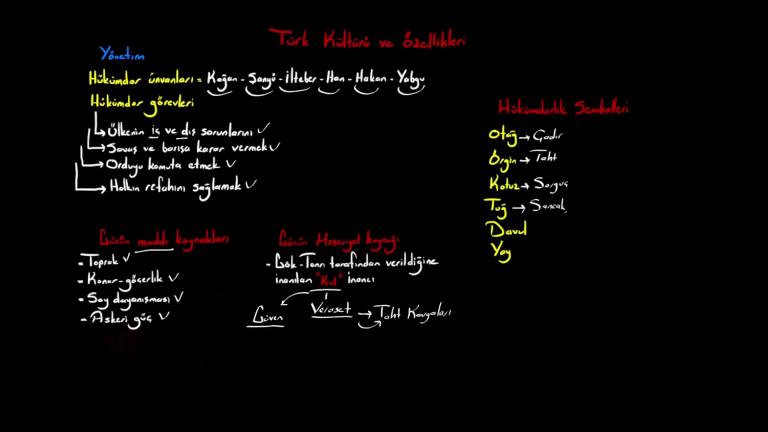 Türk Kültürü ve Özellikleri
Yönetim
Hükümdar ünvanları = Kağan - Şanyü - İlteber - Han - Hakan - Yabgu
Hükümdar görevleri
Ülkenin iç ve dış sorunlarını ✓
Savaş ve barışa karar vermek ✓
Orduyu komuta etmek ✓
Halkın refahını sağlamak ✓
Gücün maddi kaynakları
- Toprak ✓
- Konar-göçerlik ✓
- Soy dayanışması ✓
- Askeri güç ✓
Gücün Meşruiyet kaynağı
- Gök-Tanrı tarafından verildiğine
inanılan "Kut" inancı
Güven
Veraset → Taht Kavgaları
Hükümdarlık Sembolleri
Otağ → Çadır
Örgin → Taht
Kotuz → Sorguç
Tuğ → Sancak
Davul
Yay